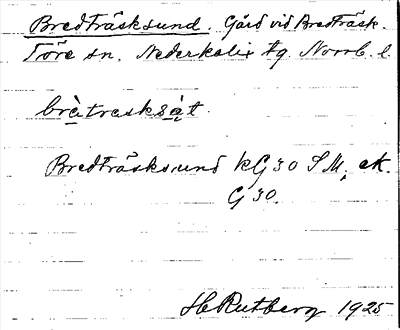 Bredträsksund. Gård vid Bredträsk.
Töre sn. Nederkalix tg. Norrb. l
brètresksạt.
Bredträsksund kG 30 S M; ek.
G 30.
H Rutberg 1925